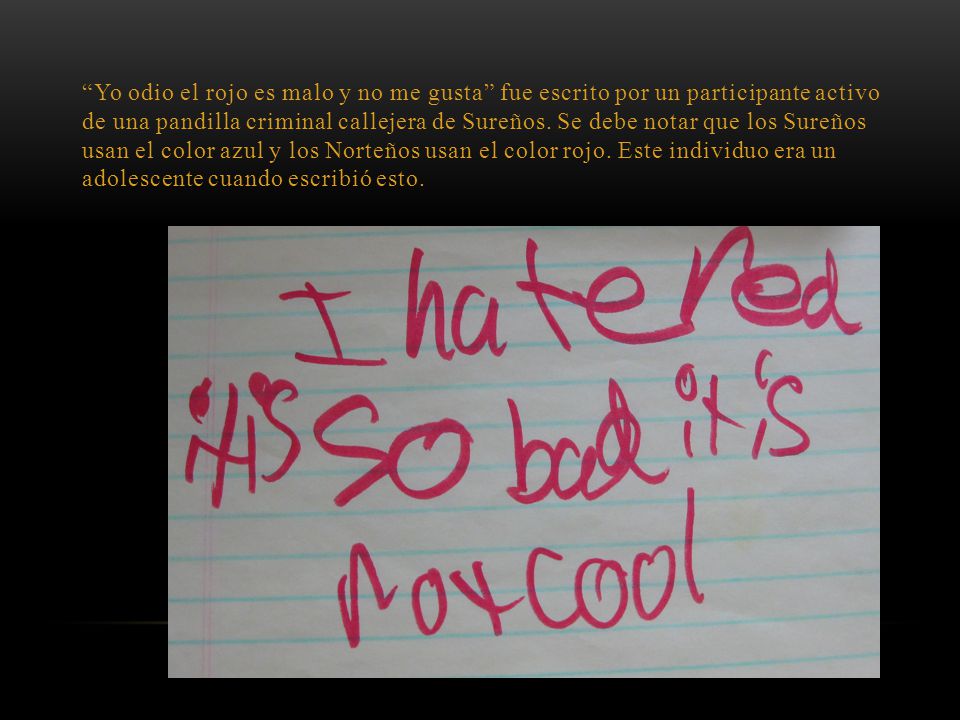 “Yo odio el rojo es malo y no me gusta” fue escrito por un participante activo
de una pandilla criminal callejera de Sureños. Se debe notar que los Sureños
usan el color azul y los Norteños usan el color rojo. Este individuo era un
adolescente cuando escribió esto.
I hate red
it's so bad it's
not cool